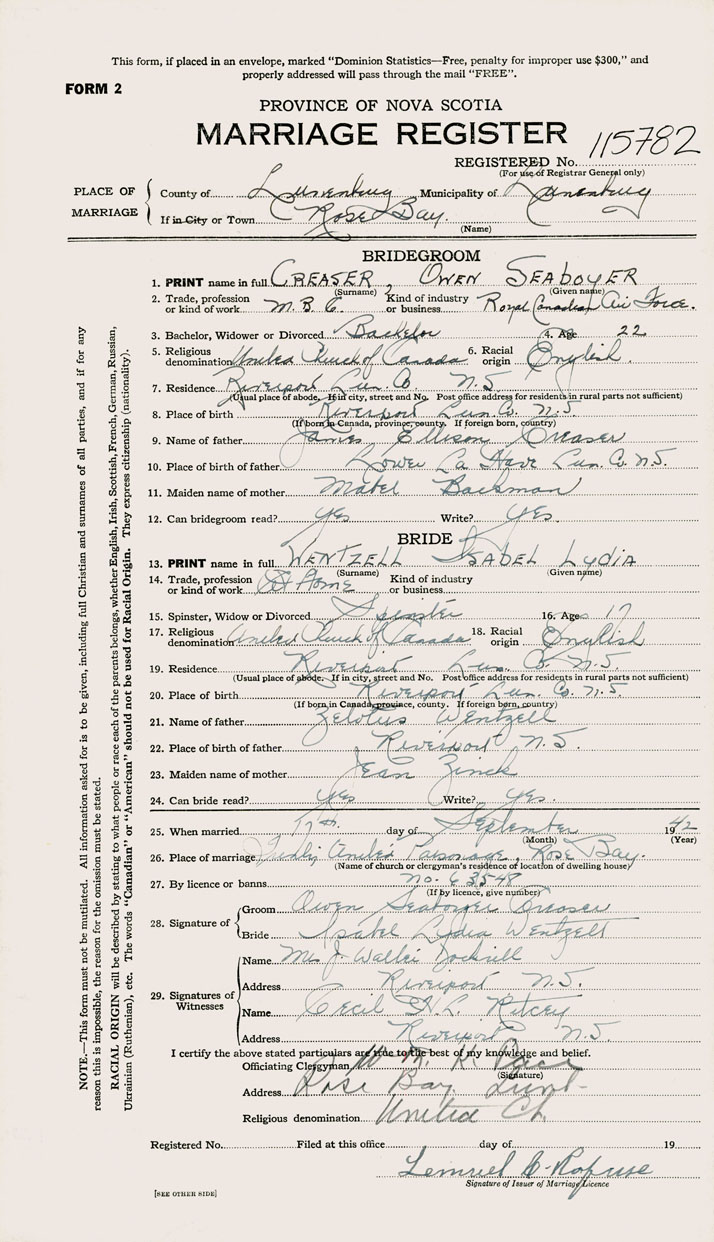 This form, if placed in an envelope, marked "Dominion Statistics—Free, penalty for improper use $300," and
properly addressed will pass through the mail "FREE".
FORM 2
PROVINCE OF NOVA SCOTIA
MARRIAGE REGISTER
REGISTERED No. 115782
(For use of Registrar General only)
PLACE OF MARRIAGE
County of Lunenburg Municipality of Lunenburg
If in City or Town Rose Bay
(Name)
BRIDEGROOM
1. PRINT name in full CREASER, OWEN SEABOYER
(Surname) (Given name)
2. Trade, profession or kind of work M.B.C. Kind of industry or business Royal Canadian Air Force.
3. Bachelor, Widower or Divorced Bachelor 4. Age 22
5. Religious denomination United Church of Canada 6. Racial origin English.
7. Residence Riverport Lun. Co. N.S.
(Usual place of abode. If in city, street and No. Post office address for residents in rural parts not sufficient)
8. Place of birth Riverport Lun. Co. N.S.
(If born in Canada, province, county. If foreign born, country)
9. Name of father James Ellison Creaser
10. Place of birth of father Lower La Have Lun. Co. N.S.
11. Maiden name of mother Mabel Backman
12. Can bridegroom read? yes Write? yes.
BRIDE
13. PRINT name in full WENTZELL ISABEL LYDIA
(Surname) (Given name)
14. Trade, profession or kind of work At Home Kind of industry or business
15. Spinster, Widow or Divorced Spinster 16. Age 17
17. Religious denomination United Church of Canada 18. Racial origin English
19. Residence Riverport Lun. Co. N.S.
(Usual place of abode. If in city, street and No. Post office address for residents in rural parts not sufficient)
20. Place of birth Riverport Lun. Co. N.S.
(If born in Canada, province, county. If foreign born, country)
21. Name of father Zelotus Wentzell
22. Place of birth of father Riverport N.S.
23. Maiden name of mother Jean Zinck
24. Can bride read? yes Write? yes.
25. When married 17th. day of September 1942
(Month) (Year)
26. Place of marriage United Parsonage, Rose Bay.
(Name of church or clergyman's residence of location of dwelling house)
27. By licence or banns no. 63548
(If by licence, give number)
28. Signature of
Groom Owen Seaboyer Creaser
Bride Isabel Lydia Wentzell
29. Signatures of Witnesses
Name J. Walter
Address Riverport N.S.
Name Cecil H. L. Ritcey
Address Riverport N.S.
I certify the above stated particulars are true to the best of my knowledge and belief.
Officiating Clergyman
(Signature)
Address Rose Bay, Lun
Religious denomination United Ch.
Registered No. Filed at this office day of 19
Lemuel
Signature of Issuer of Marriage Licence
[SEE OTHER SIDE]
NOTE.—This form must not be mutilated. All information asked for is to be given, including full Christian and surnames of all parties, and if for any
reason this is impossible, the reason for the omission must be stated.
RACIAL ORIGIN will be described by stating to what people or race each of the parents belongs, whether English, Irish, Scottish, French, German, Russian,
Ukrainian (Ruthenian), etc. The words "Canadian" or "American" should not be used for Racial Origin. They express citizenship (nationality).